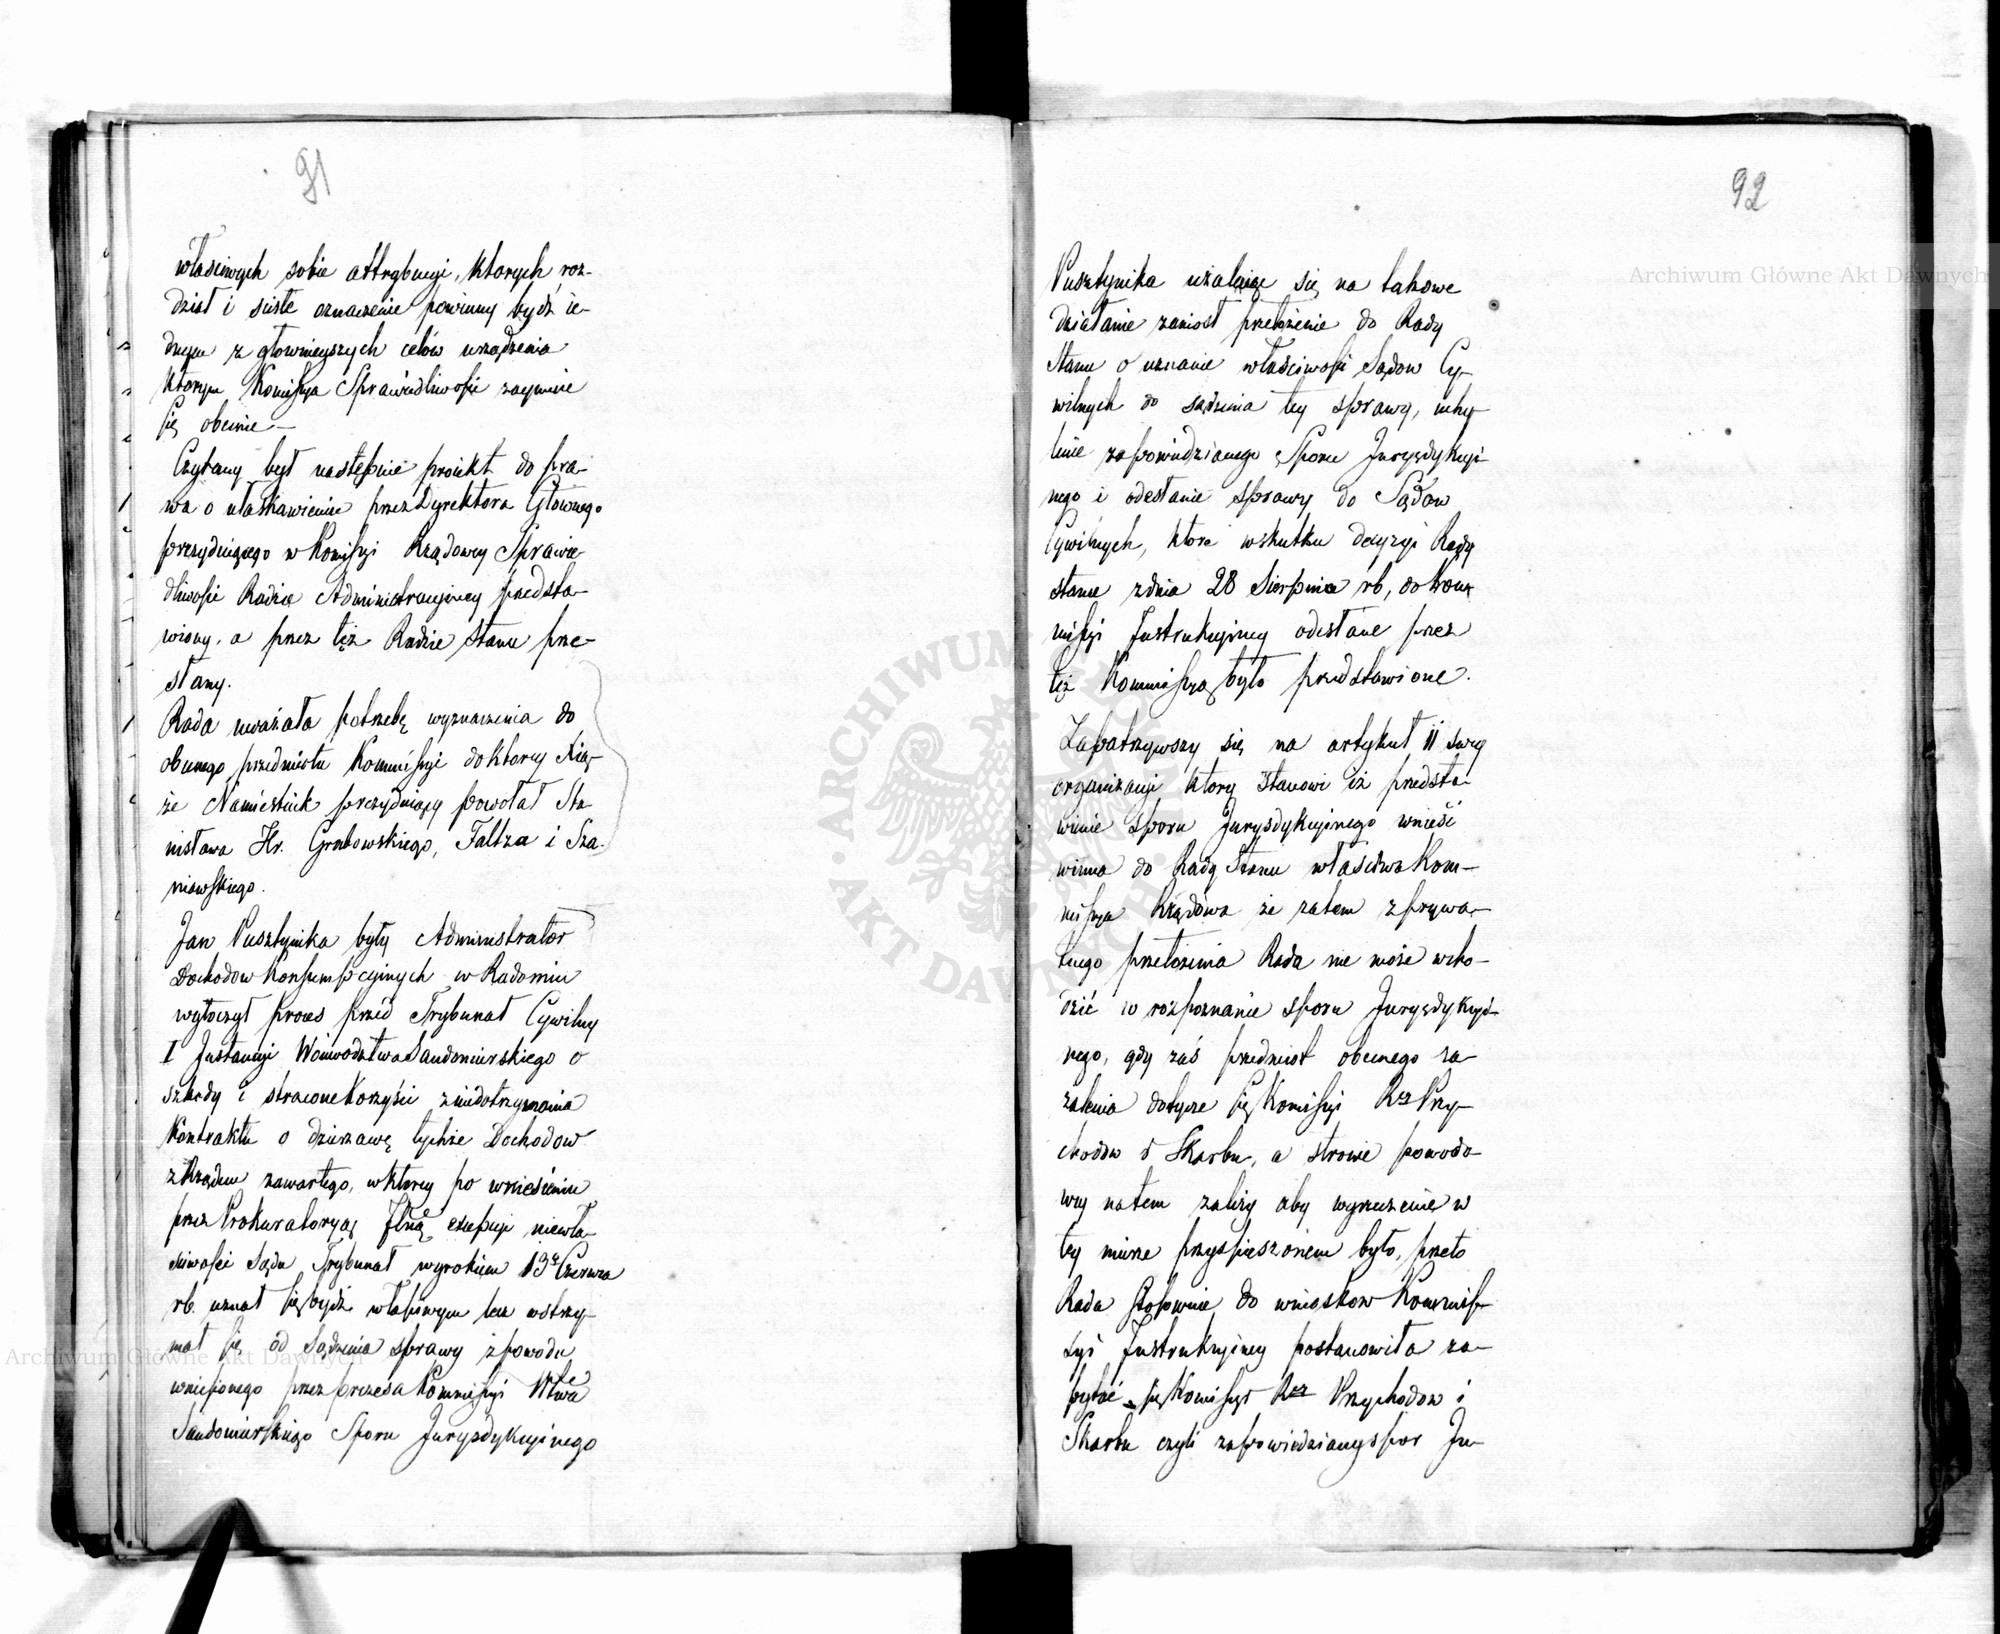 91
właściwych sobie attrybucyi, ktorych roz-
dział i ścisłe oznaczenie powinny bydź ie-
dnym z głownieyszych celów urządzenia
ktorym Kommissya Sprawiedliwości zaymuie
się obecnie —
Czytany był następnie proiekt do pra-
wa o ułaskawieniu przez Dyrektora Głównego
prezyduiącego w Komissyi Rządowey Sprawie-
dliwości Radzie Administracyiney przedsta-
wiony, a przez tęż Radzie Stanu prze-
słany.
Rada uważała potrzebę wyznaczenia do
obecnego przedmiotu Kommissyi do ktorey Xią-
że Namiestnik prezyduiący powołał Sta-
nisława Hr. Grabowskiego, Faltza i Sza-
niawskiego.
Jan Pusztynika były Administrator
Dochodow Konsumpcyinych w Radomiu
wytoczył proces przed Trybunał Cywilny
I Instancyi Woiewodztwa Sandomirskiego o
szkody i stracone korzyści z niedotrzymania
Kontraktu o dzierzawę tychże Dochodow
z Rządem zawartego, w ktorey po wniesieniu
przez Prokuratoryą Jlną excepcyi niewła-
sciwości Sądu Trybunał wyrokiem 13go Czerwca
rb. uznał się bydź właściwym lecz wstrzy-
mał się od Sądzenia sprawy z powodu
wniesionego przez prezesa Kommissyi Wtwa
Sandomirskiego Sporu Jurysdykcyinego
92
Pusztynika użalaiąc się na takowe
działanie zaniosł przełożenie do Rady
Stanu o uznanie właściwości Sądow Cy-
wilnych do sądzenia tey sprawy, uchy-
lenie zapowiedzianego Sporu Jurysdykcyi-
nego i odesłanie sprawy do Sądow
Cywilnych, ktore wskutku decyzyi Rady
stanu z dnia 28 Sierpnia rb, do Kom-
missyi Instrukcyiney odesłane przez
tęż Kommissyą było przedstawione.
Zapatrzywszy się na artykuł 11 swey
organizacyi ktory stanowi iż przedsta-
wienie sporu Jurysdykcyinego wnieść
winna do Rady Stanu właściwa Kom-
missya Rządowa że zatem z prywa-
tnego przełożenia Rada nie może wcho-
dzić w rozpoznanie sporu Jurysdykcyi-
nego, gdy zaś przedmiot obecnego za-
żalenia dotycze się Komissyi Rzz Przy-
chodow i Skarbu, a stronie powodo-
wey na tem zależy aby wyrzeczenie w
tey mierze przyspieszonem było, przeto
Rada stosownie do wniosków Kommiss-
syi Instrukcyiney postanowiła za-
pytać się Komissyi Rzz Przychodow i
Skarbu czyli zapowiedziany spor Ju-
Archiwum Główne Akt Dawnych
Archiwum Główne Akt Dawnych
ARCHIWUM GŁÓWNE AKT DAWNYCH